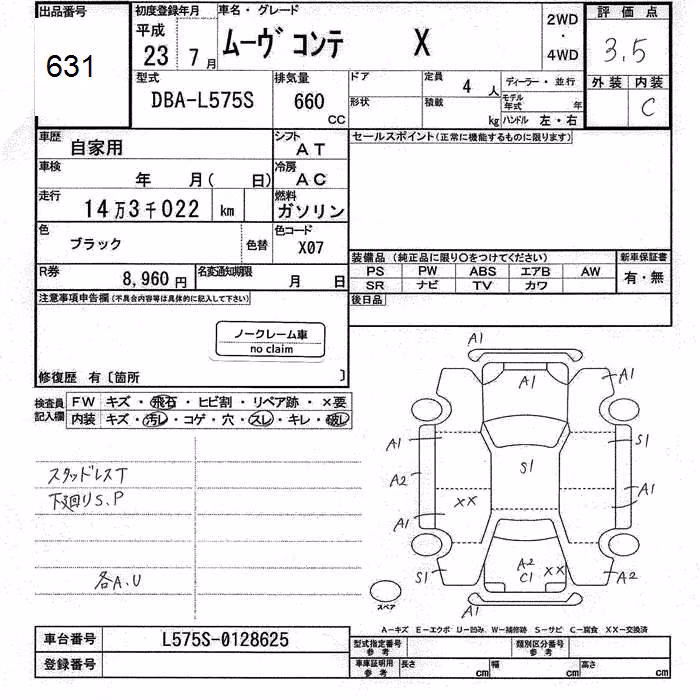 出品番号 初度登録年月 車名・グレード 2WD・4WD 評価点
631 平成 23 7月 ムーヴ コンテ X 3.5
型式 排気量 ドア 定員 4人 ディーラー・並行 外装 内装
DBA-L575S 660 CC 形状 積載 kg モデル年式 年 ハンドル 左・右 C
車歴 自家用 シフト AT セールスポイント(正常に機能するものに限ります)
車検 年 月( 日) 冷房 AC
走行 14万3千022 km 燃料 ガソリン
色 ブラック 色替 色コード X07
装備品 (純正品に限り〇をつけてください) 新車保証書
PS PW ABS エアB AW 有・無
SR ナビ TV カワ
R券 8,960円 名変通知期限 月 日
後日品
注意事項申告欄(不具合内容等は具体的に記入して下さい)
ノークレーム車
no claim
修復歴 有〔箇所 〕
検査員記入欄 FW キズ・飛石・ヒビ割・リペア跡・×要
内装 キズ・汚レ・コゲ・穴・スレ・キレ・破レ
スタッドレスT
下廻りS.P
各A.U
A1
A1 A1
A1 S1 S1
A2 A1
XX
A1
S1 A2 C1 XX A2
A1
スペア
A-キズ E-エクボ U-凹み W-補修跡 S-サビ C-腐食 XX-交換済
車台番号 L575S-0128625 型式指定番号 参考 類別区分番号 参考
登録番号 車庫証明用 参考 長さ cm 幅 cm 高さ cm